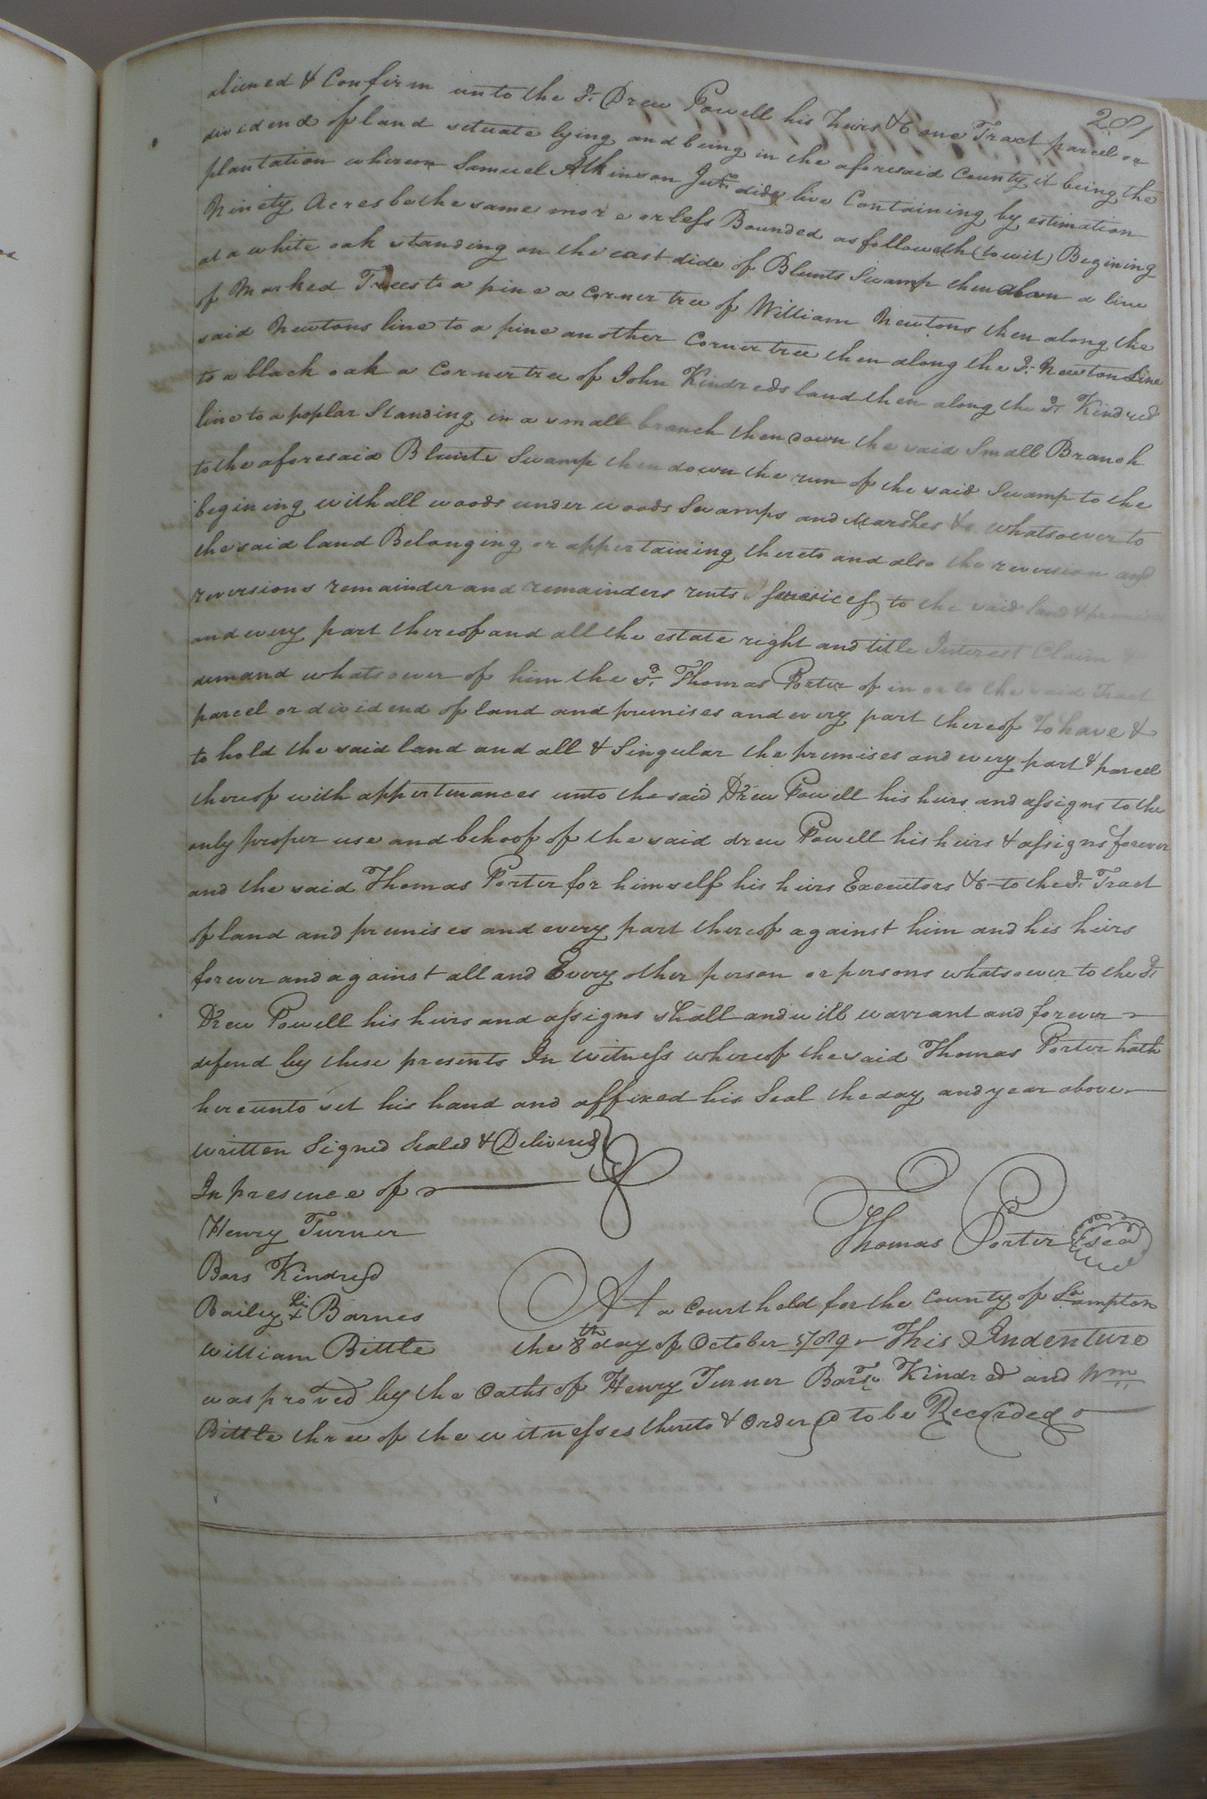 281
aliened & Confirm unto the sd. Drew Powell his heirs &c one Tract parcel or
dividend of land situate lying and being in the aforesaid County it being the
plantation whereon Samuel Atkinson Junr. did live Containing by estimation
Ninety Acres be the same more or less Bounded as followeth (to wit) Begining
at a white oak standing on the east side of Blunts Swamp then down a line
of Marked Trees to a pine a Corner tree of William Newtons then along the
said Newtons line to a pine another Corner tree then along the sd. Newton Line
to a black oak a Corner tree of John Kindreds land then along the sd. Kindred
line to a poplar Standing in a small branch then down the said Small Branch
to the aforesaid Blunts Swamp then down the run of the said Swamp to the
begining with all woods under woods Swamps and Marshes &c whatsoever to
the said land Belonging or appertaining thereto and also the reversion and
reversions remainder and remainders rents & services to the said land & premises
and every part thereof and all the estate right and title Interest Claim
demand whatsoever of him the sd. Thomas Porter of in or to the said Tract
parcel or dividend of land and premises and every part thereof To have &
to hold the said land and all & Singular the premises and every part & parcel
thereof with appertenances unto the said Drew Powell his heirs and assigns to the
only proper use and behoof of the said drew Powell his heirs & assigns forever
and the said Thomas Porter for himself his heirs Executors &c to the sd. Tract
of land and premises and every part thereof against him and his heirs
forever and against all and Every other person or persons whatsoever to the sd.
Drew Powell his heirs and assigns shall and will warrant and forever
defend by these presents In witness whereof the said Thomas Porter hath
hereunto set his hand and affixed his Seal the day and year above
written Signed Sealed & Delivered
In presence of
Henry Turner
Thomas Porter Seal
Bars Kindred
Bailey his + Barnes
At a Court held for the County of So.ampton
William Bittle
the 8th day of October 1789 This Indenture
was proved by the Oaths of Henry Turner Barsw. Kindred and Wm
Bittle three of the witnesses thereto & Ordered to be Recorded